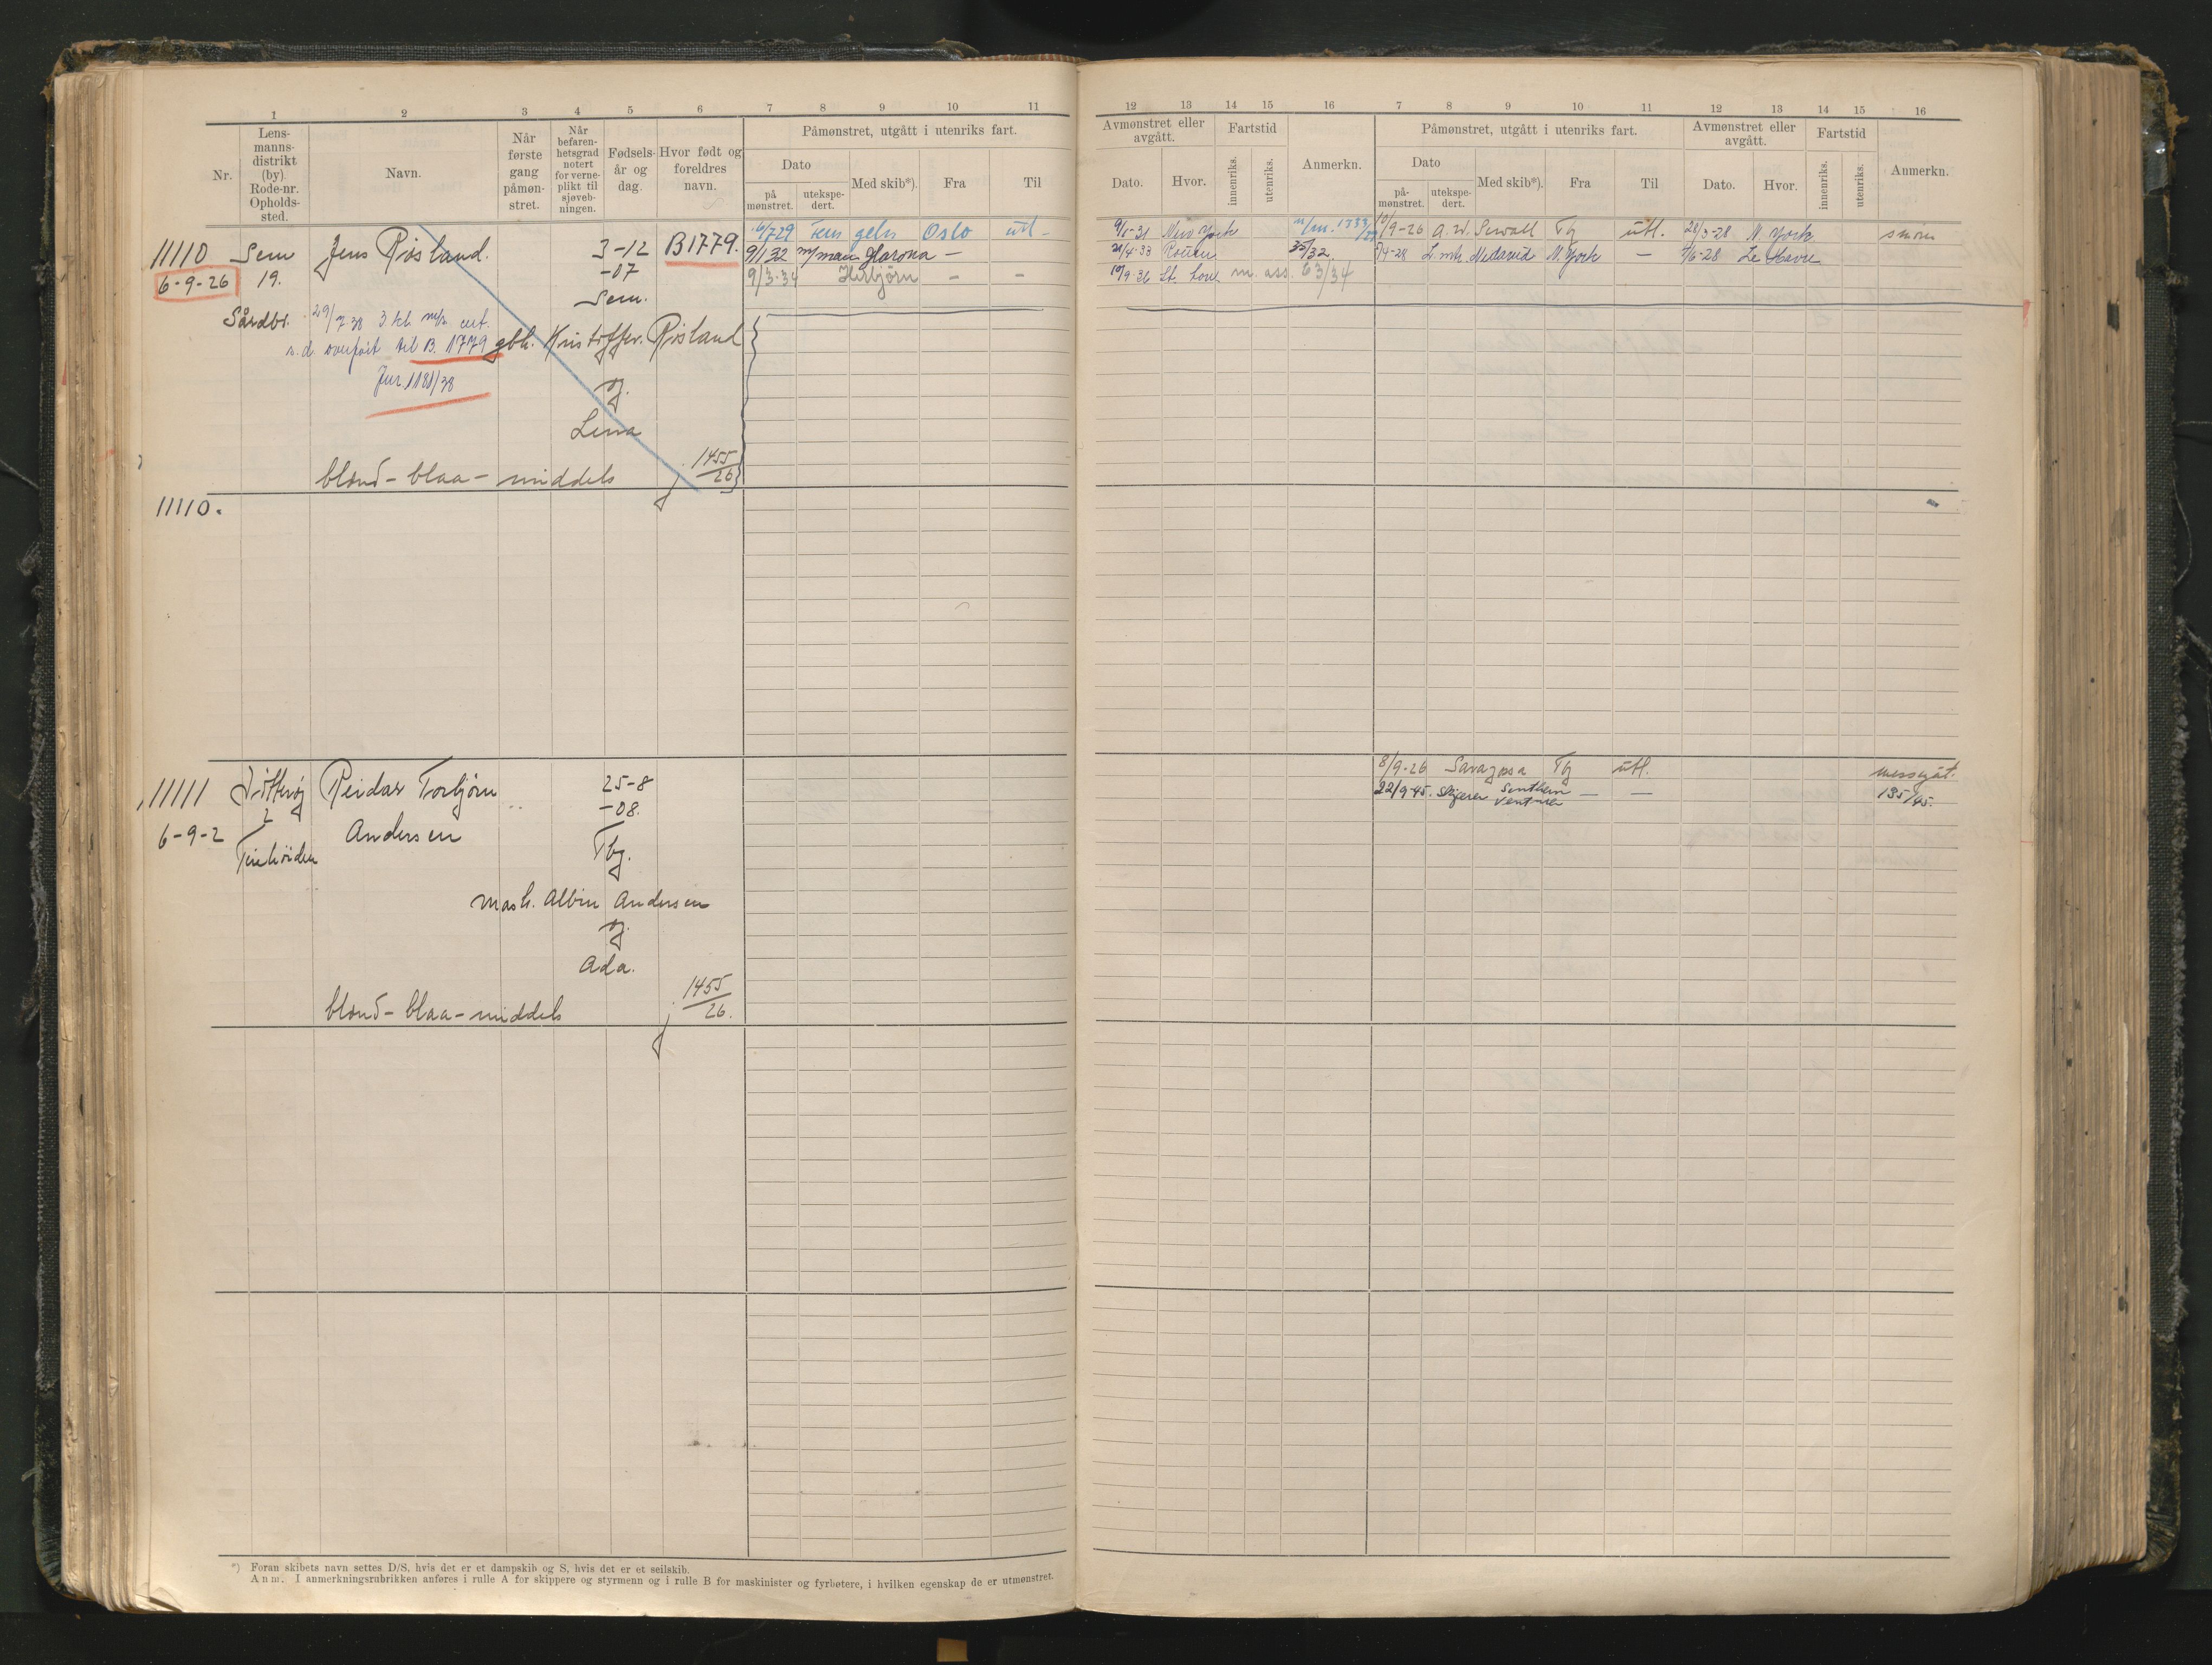 1 2 3 4 5 6 7 8 9 10 11
Nr.
Lens-
manns-
distrikt
(by)
Rode-nr.
Opholds-
sted.
Navn.
Når
første
gang
påmøn-
stret.
Når
befaren-
hetsgrad
notert
for verne-
plikt til
sjøveb-
ningen.
Fødsels-
år og
dag.
Hvor født og
foreldres
navn.
Påmønstret, utgått i utenriks fart.
Dato
på
mønstret.
utekspe-
dert.
Med skib*).
Fra
Til
11110 Sem Jens Røsland. 3-12 B1779.
6-9-26 19. -07
Sem.
6/7 29 Oslo utl -
9/1 32 Glarona -
9/3-34 Herbjørn - -
29/7 38 3 kl.
overført til B. 1779
Jnr. 1181/38
gbh. Kristoffer Røsland
og
Lena
blond - blaa - middels j 1455/26
11110.
11111 Reidar Torbjørn 25-8
2 -08.
6-9-2 Andersen Tbg.
mask. Albin Andersen
og
Ada.
blond - blaa - middels j 1455/26.
*) Foran skibets navn settes D/S, hvis det er et dampskib og S, hvis det er et seilskib.
Anm. I anmerkningsrubrikken anføres i rulle A for skippere og styrmenn og i rulle B for maskinister og fyrbøtere, i hvilken egenskap de er utmønstret.
12 13 14 15 16 7 8 9 10 11 12 13 14 15 16
Avmønstret eller
avgått.
Dato.
Hvor.
Fartstid
innenriks.
utenriks.
Anmerkn.
Påmønstret, utgått i utenriks fart.
Dato
på-
mønstret.
utekspe-
dert.
Med skib*).
Fra
Til
Avmønstret eller
avgått.
Dato.
Hvor.
Fartstid
innenriks.
utenriks.
Anmerkn.
New York 10/9-26 A. W. Sewall Tg utl. N. York smøre
21/4-33 Rouen 35/32. Medavid N. York - 7/6-28 Le Havre
m. ass. 63/34
8/9-26 Saragossa Tg utl. messgut.
22/9-45. Skytteren Southern - - 135/45.
Venturer